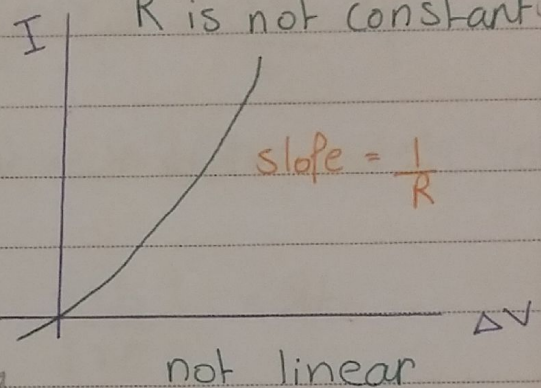 R is not constant
I
slope = 1/R
ΔV
not linear